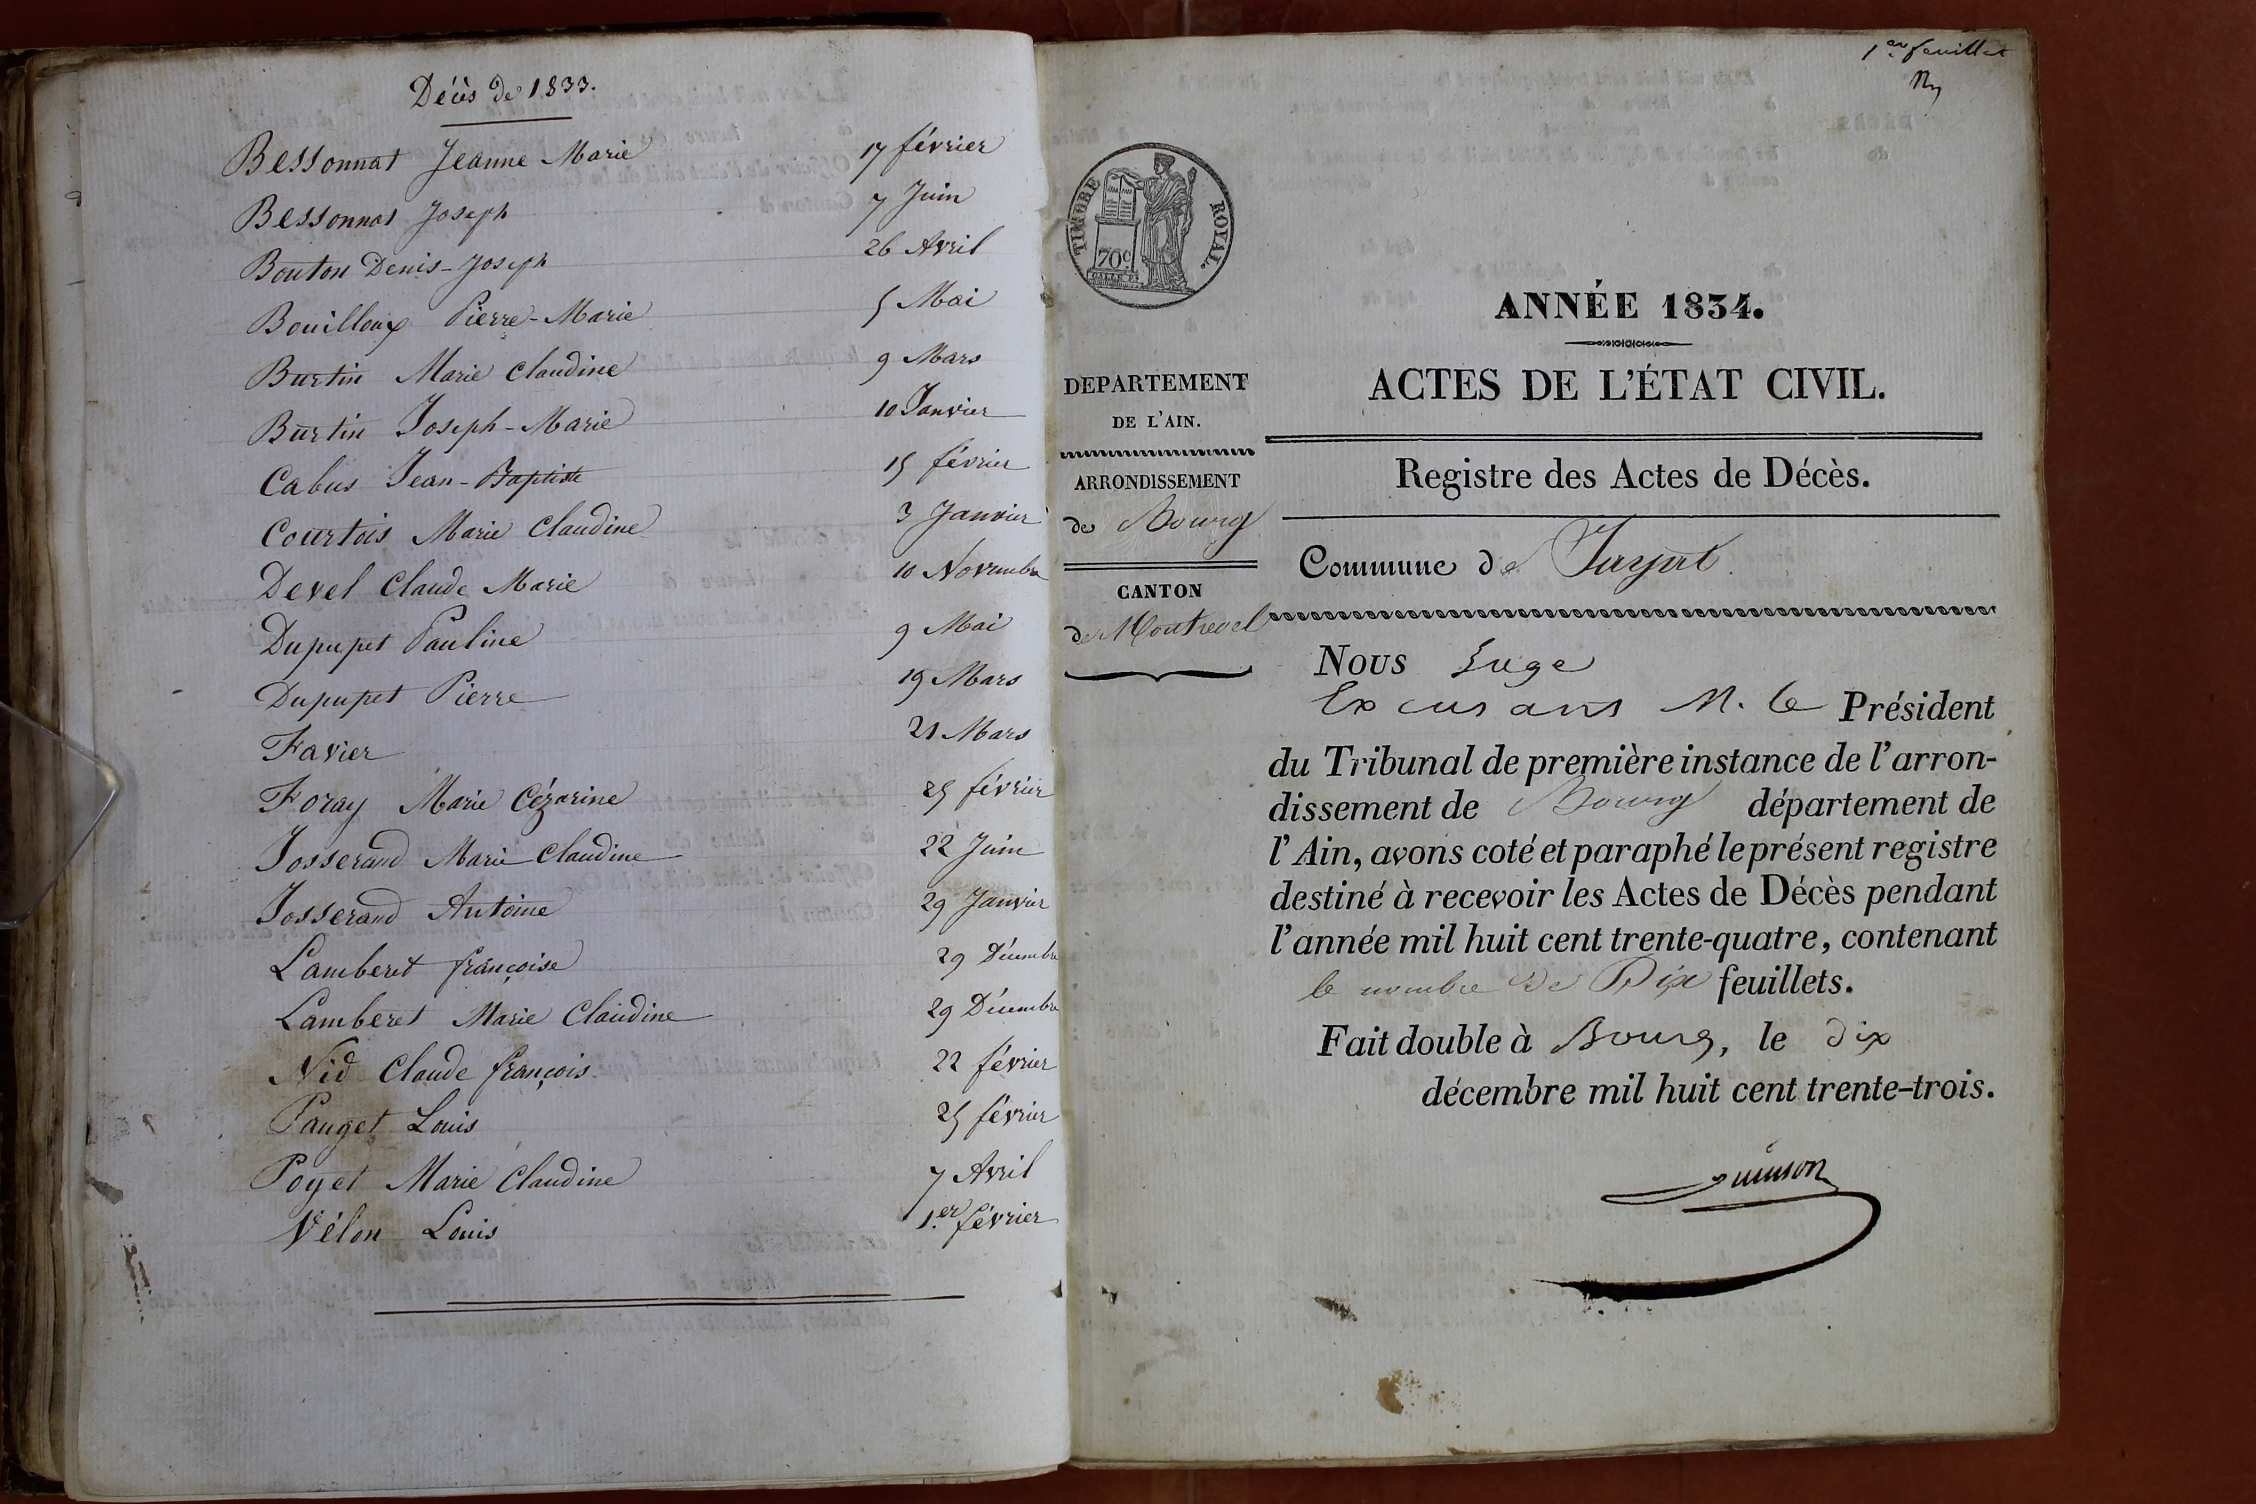 Décès de 1833.
Bessonnat Jeanne Marie 17 février
Bessonnat Joseph 7 Juin
Bouton Denis-Joseph 26 Avril
Bouilloux Pierre-Marie 5 Mai
Burtin Marie Claudine 9 Mars
Burtin Joseph-Marie 10 Janvier
Cabus Jean-Baptiste 15 février
Courtois Marie Claudine 3 Janvier
Devel Claude Marie 10 Novembre
Dupupet Pauline 9 Mai
Dupupet Pierre 19 Mars
Favier 21 Mars
Foray Marie Cézarine 25 février
Josserand Marie Claudine 22 Juin
Josserand Antoine 29 Janvier
Lamberet françoise 29 Décembre
Lamberet Marie Claudine 29 Décembre
Nid Claude françois 22 février
Pauget Louis 25 février
Poyet Marie Claudine 7 Avril
Vélon Louis 1.er février
1er feuillet
TIMBRE ROYAL.
70c.
DEPARTEMENT
DE L'AIN.
ARRONDISSEMENT
de Bourg
CANTON
de Montrevel
ANNÉE 1834.
ACTES DE L'ÉTAT CIVIL.
Registre des Actes de Décès.
Commune de Jayat
Nous Juge
M. le Président
du Tribunal de première instance de l'arron-
dissement de Bourg département de
l'Ain, avons coté et paraphé le présent registre
destiné à recevoir les Actes de Décès pendant
l'année mil huit cent trente-quatre, contenant
le nombre de Dix feuillets.
Fait double à Bourg, le dix
décembre mil huit cent trente-trois.